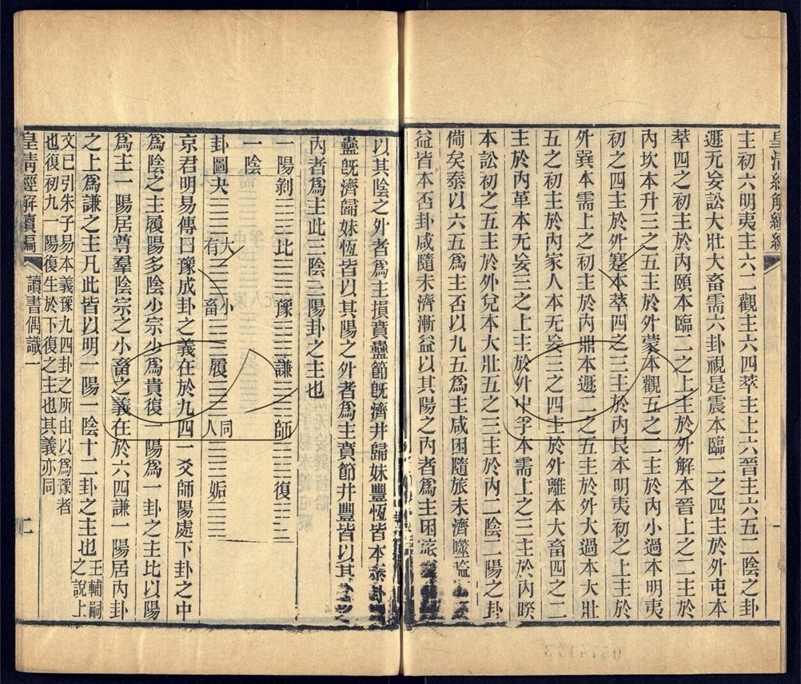 主初六明夷主六二觀主六四萃主上六晉主六五二陰之卦
遯无妄訟大壯大畜需六卦視是震本臨二之四主於外屯本
萃四之初主於內頤本臨二之上主於外解本晉上之二主於
內坎本升三之五主於外蒙本觀五之二主於內小過本明夷
初之四主於外蹇本萃四之三主於內艮本明夷初之上主於
外巽本需上之初主於內鼎本遯二之五主於外大過本大壯
五之初主於內家人本无妄三之四主於外離本大畜四之二
主於內革本无妄三之上主於外中孚本需上之三主於內睽
本訟初之五主於外兌本大壯五之三主於內二陰二陽之卦
備矣泰以六五爲主否以九五爲主咸困隨旅未濟噬嗑
益皆本否卦咸隨未濟漸益以其陽之內者爲主困旅
以其陰之外者爲主損賁蠱節旣濟井歸妹豐恆皆本泰卦
蠱旣濟歸妹恆皆以其陽之外者爲主賁節井豐皆以其
內者爲主此三陰三陽卦之主也
一陽剝 比 豫 謙 師 復
一陰
卦圖夬 大有 小畜 履 同人 姤
京君明易傳曰豫成卦之義在於九四一爻師陽處下卦之中
爲陰之主履陽多陰少宗少爲貴復一陽爲一卦之主比以陽
爲主一陽居尊羣陰宗之小畜之義在於六四謙一陽居內卦
之上爲謙之主凡此皆以明一陽一陰十二卦之主也王輔嗣之說上
文已引朱子易本義豫九四卦之所由以爲豫者
也復初九一陽復生於下復之主也其義亦同
皇清經解續編
讀書偶識一
二